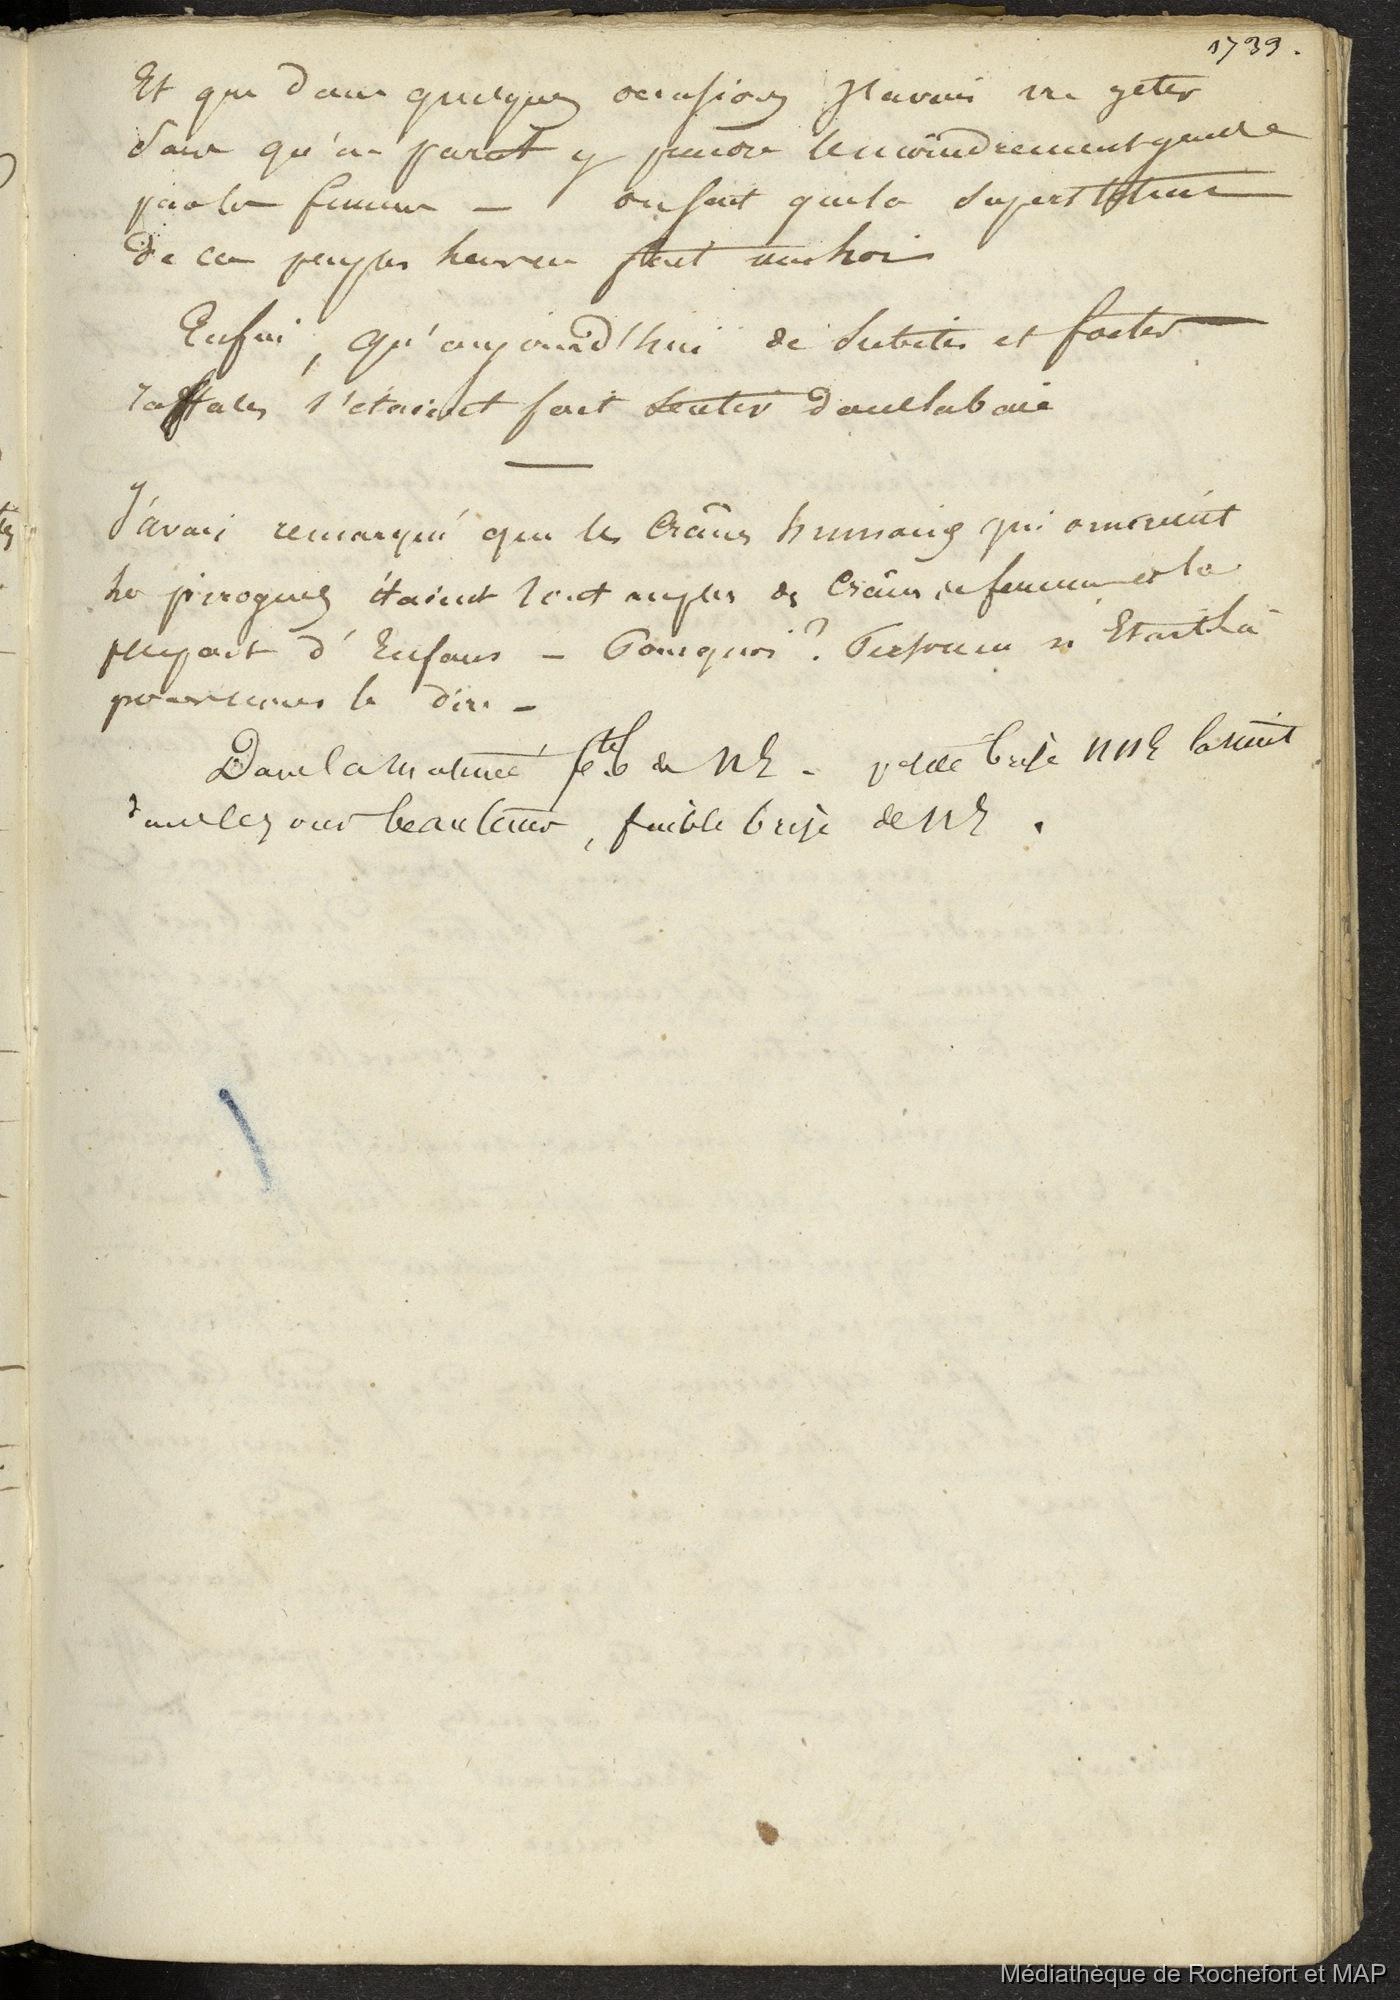 1739.
Et que dans quelques occasions J'avais vu jeter
sans qu'on parut y prendre le moindrement garde
par les femmes — on sent que la superstition
de ces peuples
Enfin, qu'aujourd'hui de subites et fortes
raffales s'étaient fait sentir dans la baie
J'avais remarqué que les Crânes humains qui ornaient
les pirogues étaient tout de Crânes de femmes et la
plupart d'Enfans — Pourquoi? Personne à
pu le dire —
Dans la matinée jte b. de NE — petite brise NNE la nuit
beau temps, faible brise de NE.
Médiathèque de Rochefort et MAP